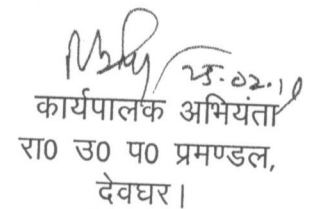 25.02.10
कार्यपालक अभियंता
रा0 उ0 प0 प्रमण्डल,
देवघर।